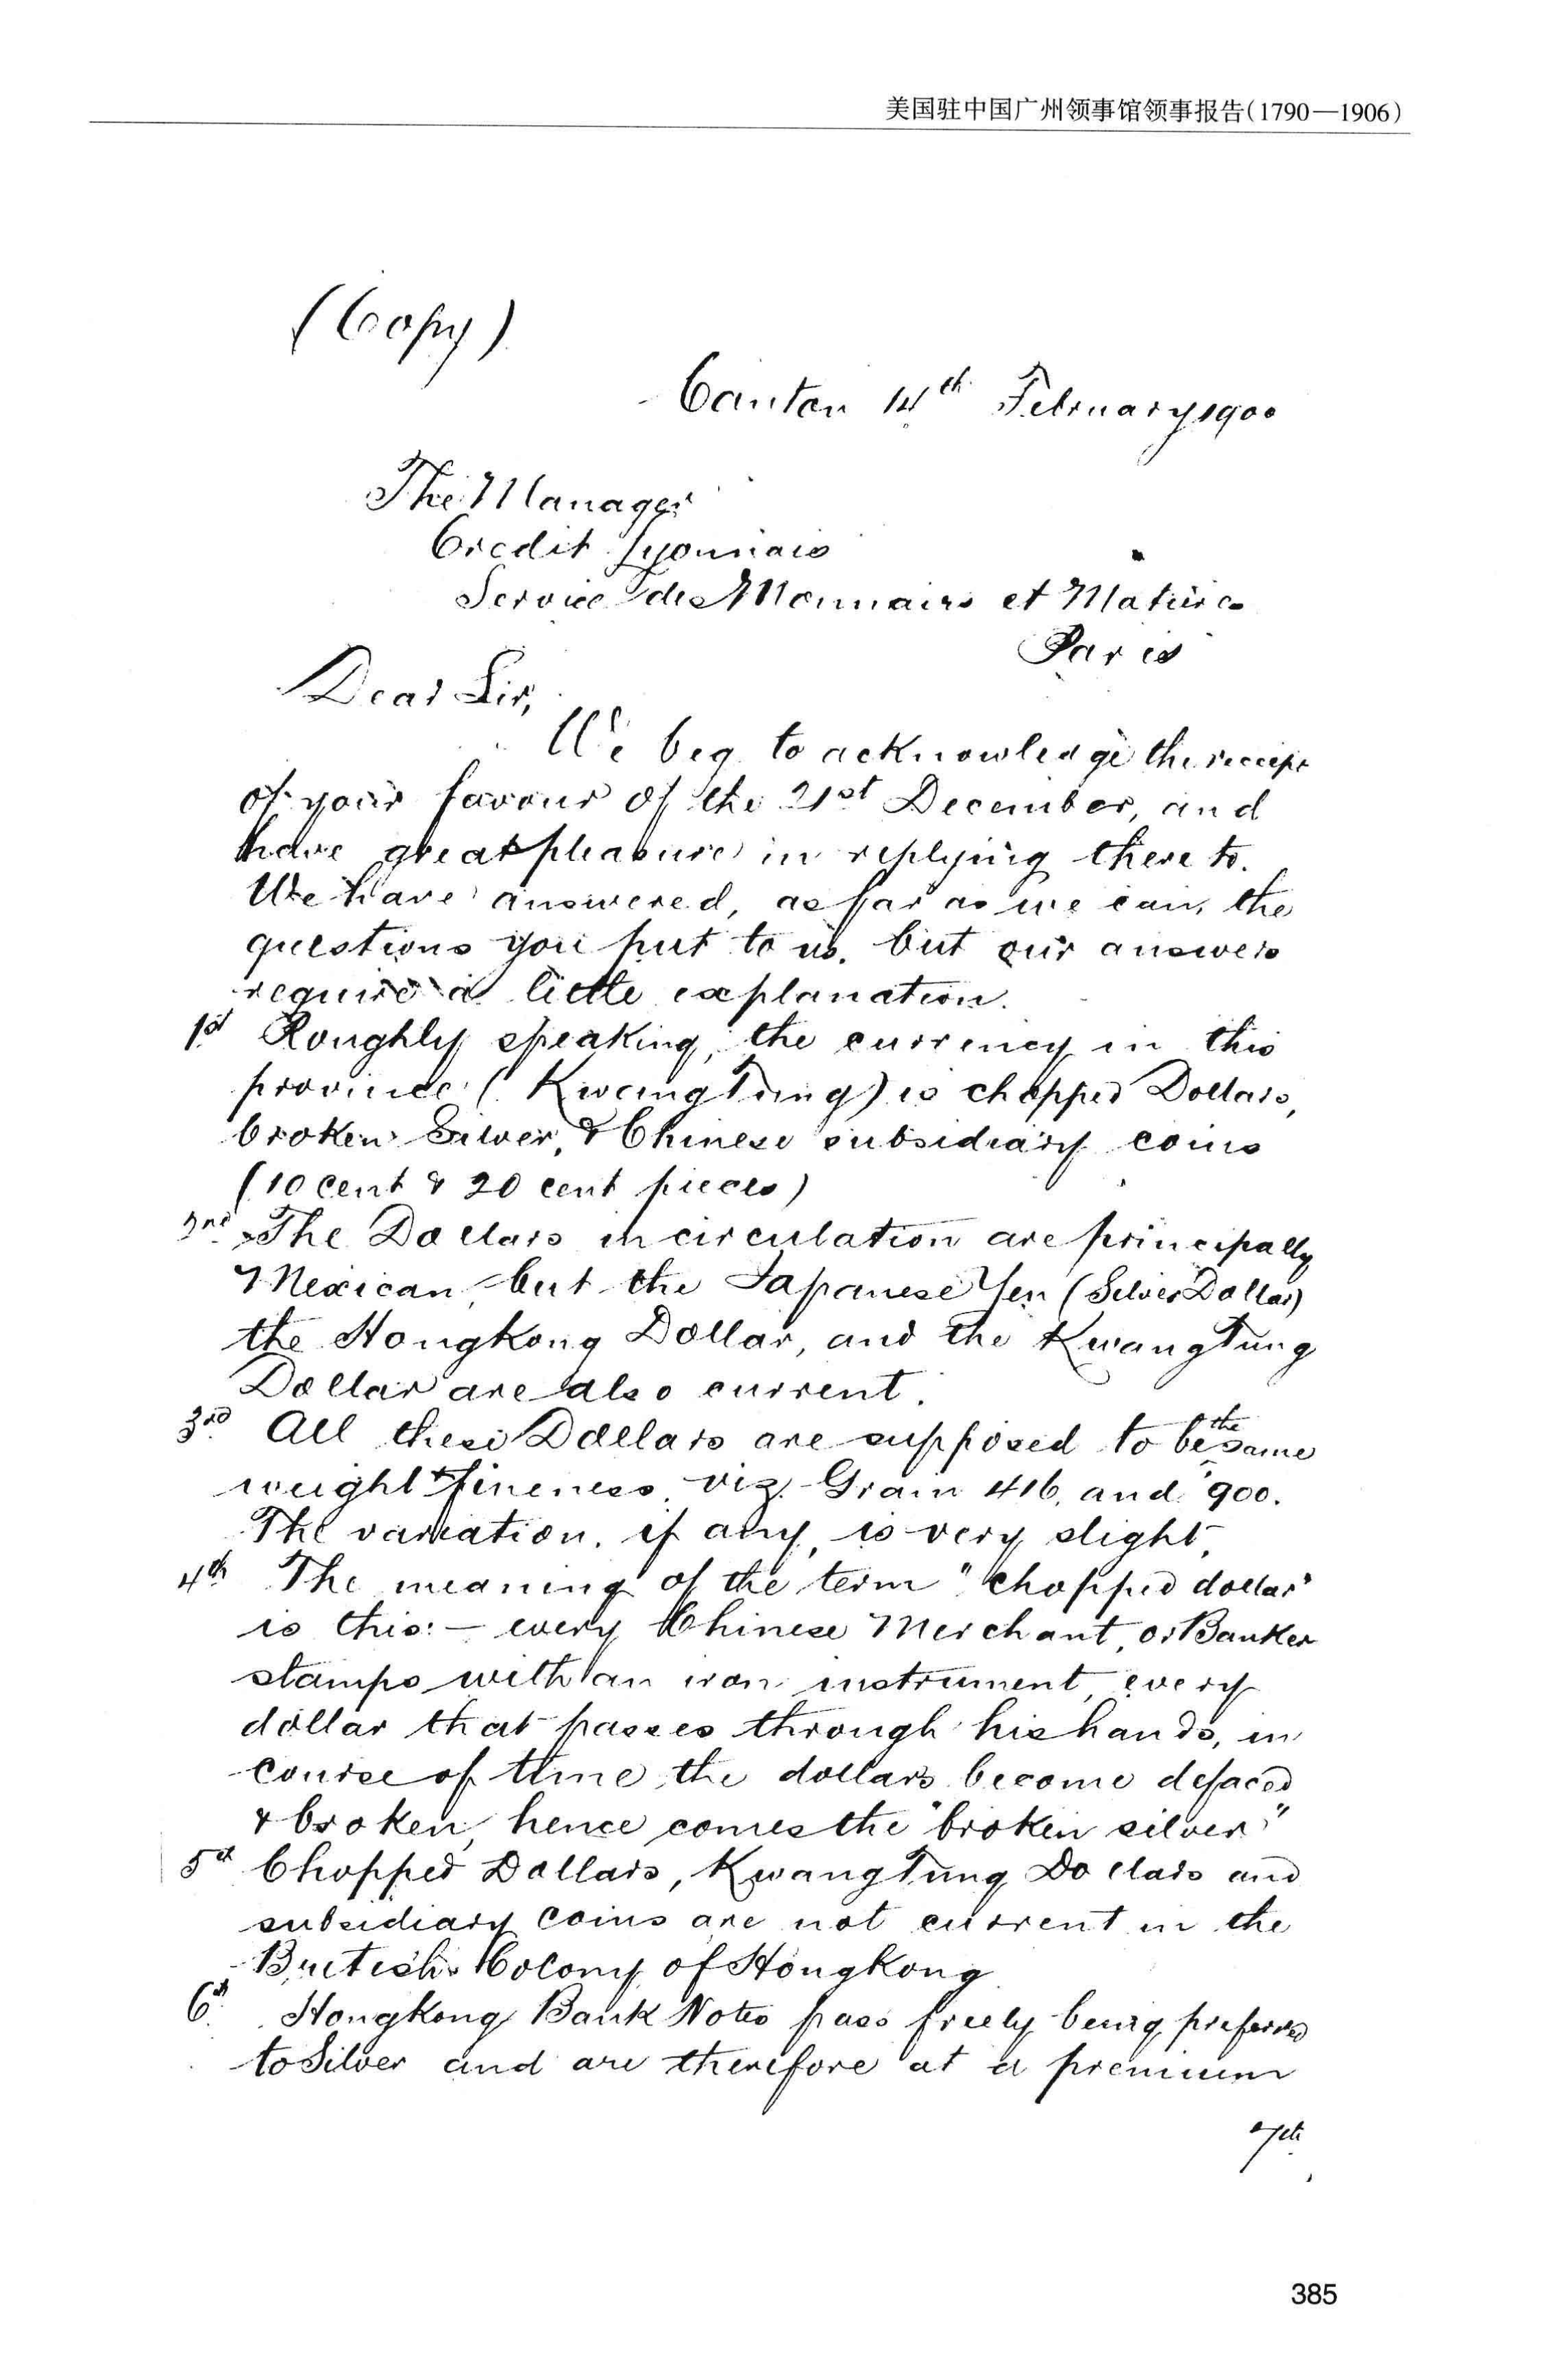 美国驻中国广州领事馆领事报告(1790—1906)
(Copy)
Canton 14th February 1900
The Manager
Credit Lyonnais
Service des Monnaies et Matières
Paris
Dear Sir,
We beg to acknowledge the receipt
of your favour of the 21st December, and
have great pleasure in replying there to.
We have answered, as far as we can, the
questions you put to us, but our answers
require a little explanation.
1st Roughly speaking, the currency in this
province (KwangTung) is chopped Dollars,
broken Silver, & Chinese subsidiary coins
(10 cent & 20 cent pieces)
2nd The Dollars in circulation are principally
Mexican, but the Japanese Yen (Silver Dollar)
the Hongkong Dollar, and the KwangTung
Dollar are also current.
3rd All these Dollars are supposed to be the same
weight & fineness, viz. Grain 416, and 900.
The variation, if any, is very slight,
4th The meaning of the term "Chopped dollar"
is this:— every Chinese Merchant, or Banker
stamps with an iron instrument, every
dollar that passes through his hands, in
course of time, the dollars become defaced
& broken, hence comes the "broken silver"
5th Chopped Dollars, KwangTung Dollars and
subsidiary Coins are not current in the
British Colony of Hongkong
6th Hongkong Bank Notes pass freely being preferred
to Silver and are therefore at a premium
7th
385